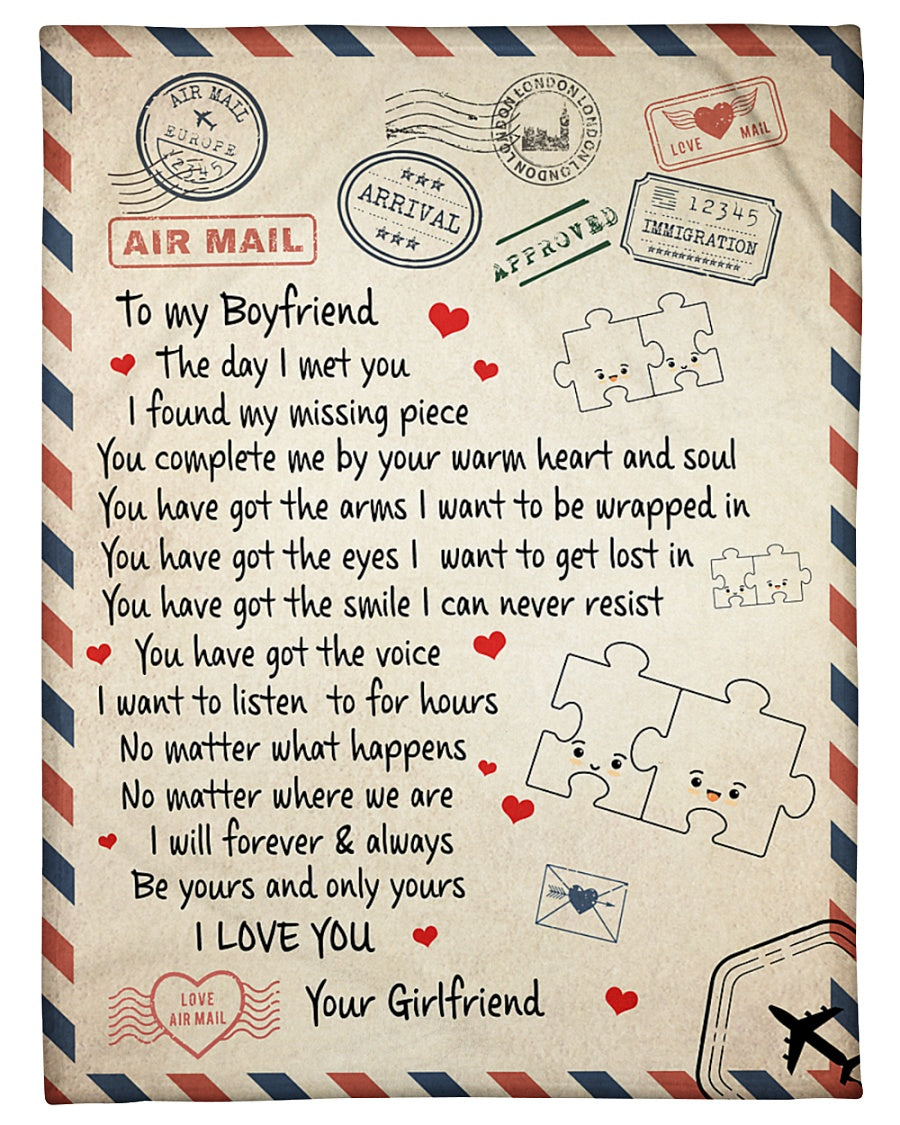 AIR MAIL
EUROPE
12345
LONDON LONDON LONDON LONDON
LOVE MAIL
ARRIVAL
12345
IMMIGRATION
APPROVED
AIR MAIL
To my Boyfriend
The day I met you
I found my missing piece
You complete me by your warm heart and soul
You have got the arms I want to be wrapped in
You have got the eyes I want to get lost in
You have got the smile I can never resist
You have got the voice
I want to listen to for hours
No matter what happens
No matter where we are
I will forever & always
Be yours and only yours
I LOVE YOU
Your Girlfriend
LOVE
AIR MAIL